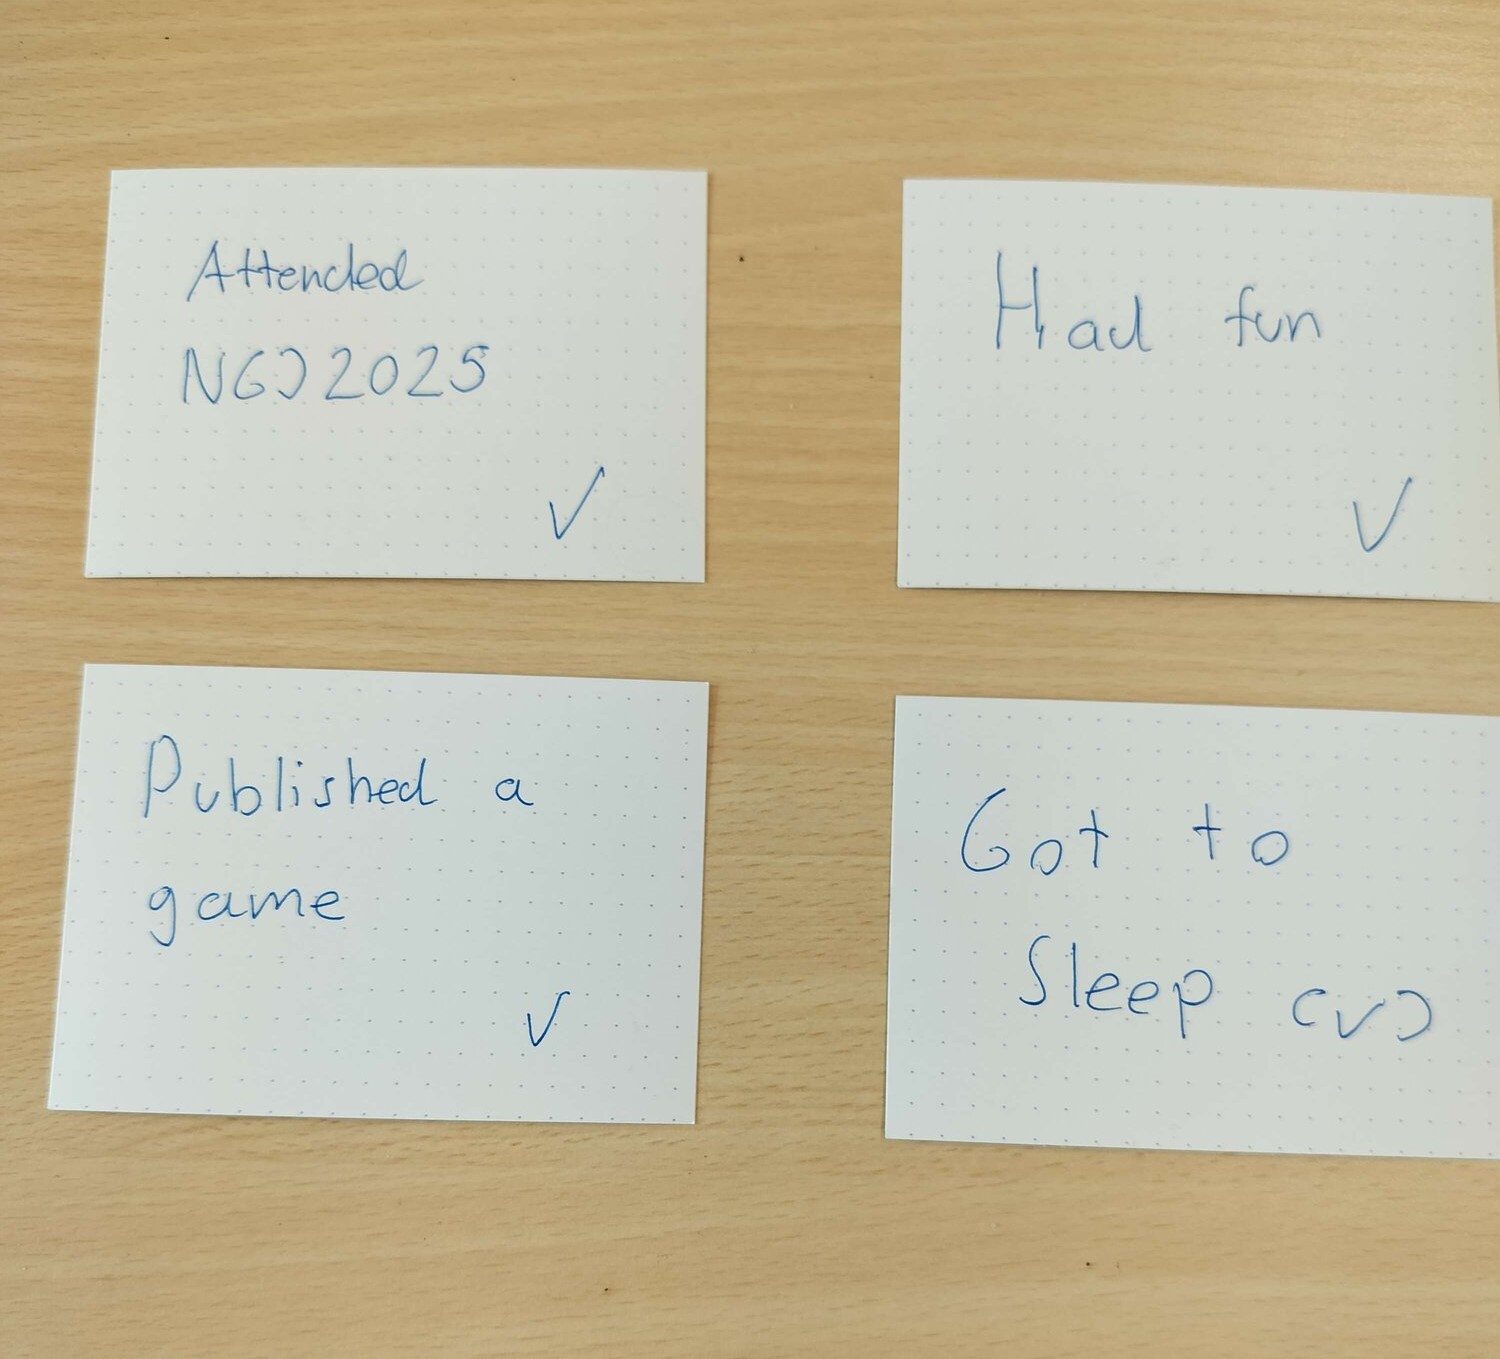 Attended
NGJ2025
✓
Had fun
✓
Published a
game
✓
Got to
Sleep (✓)